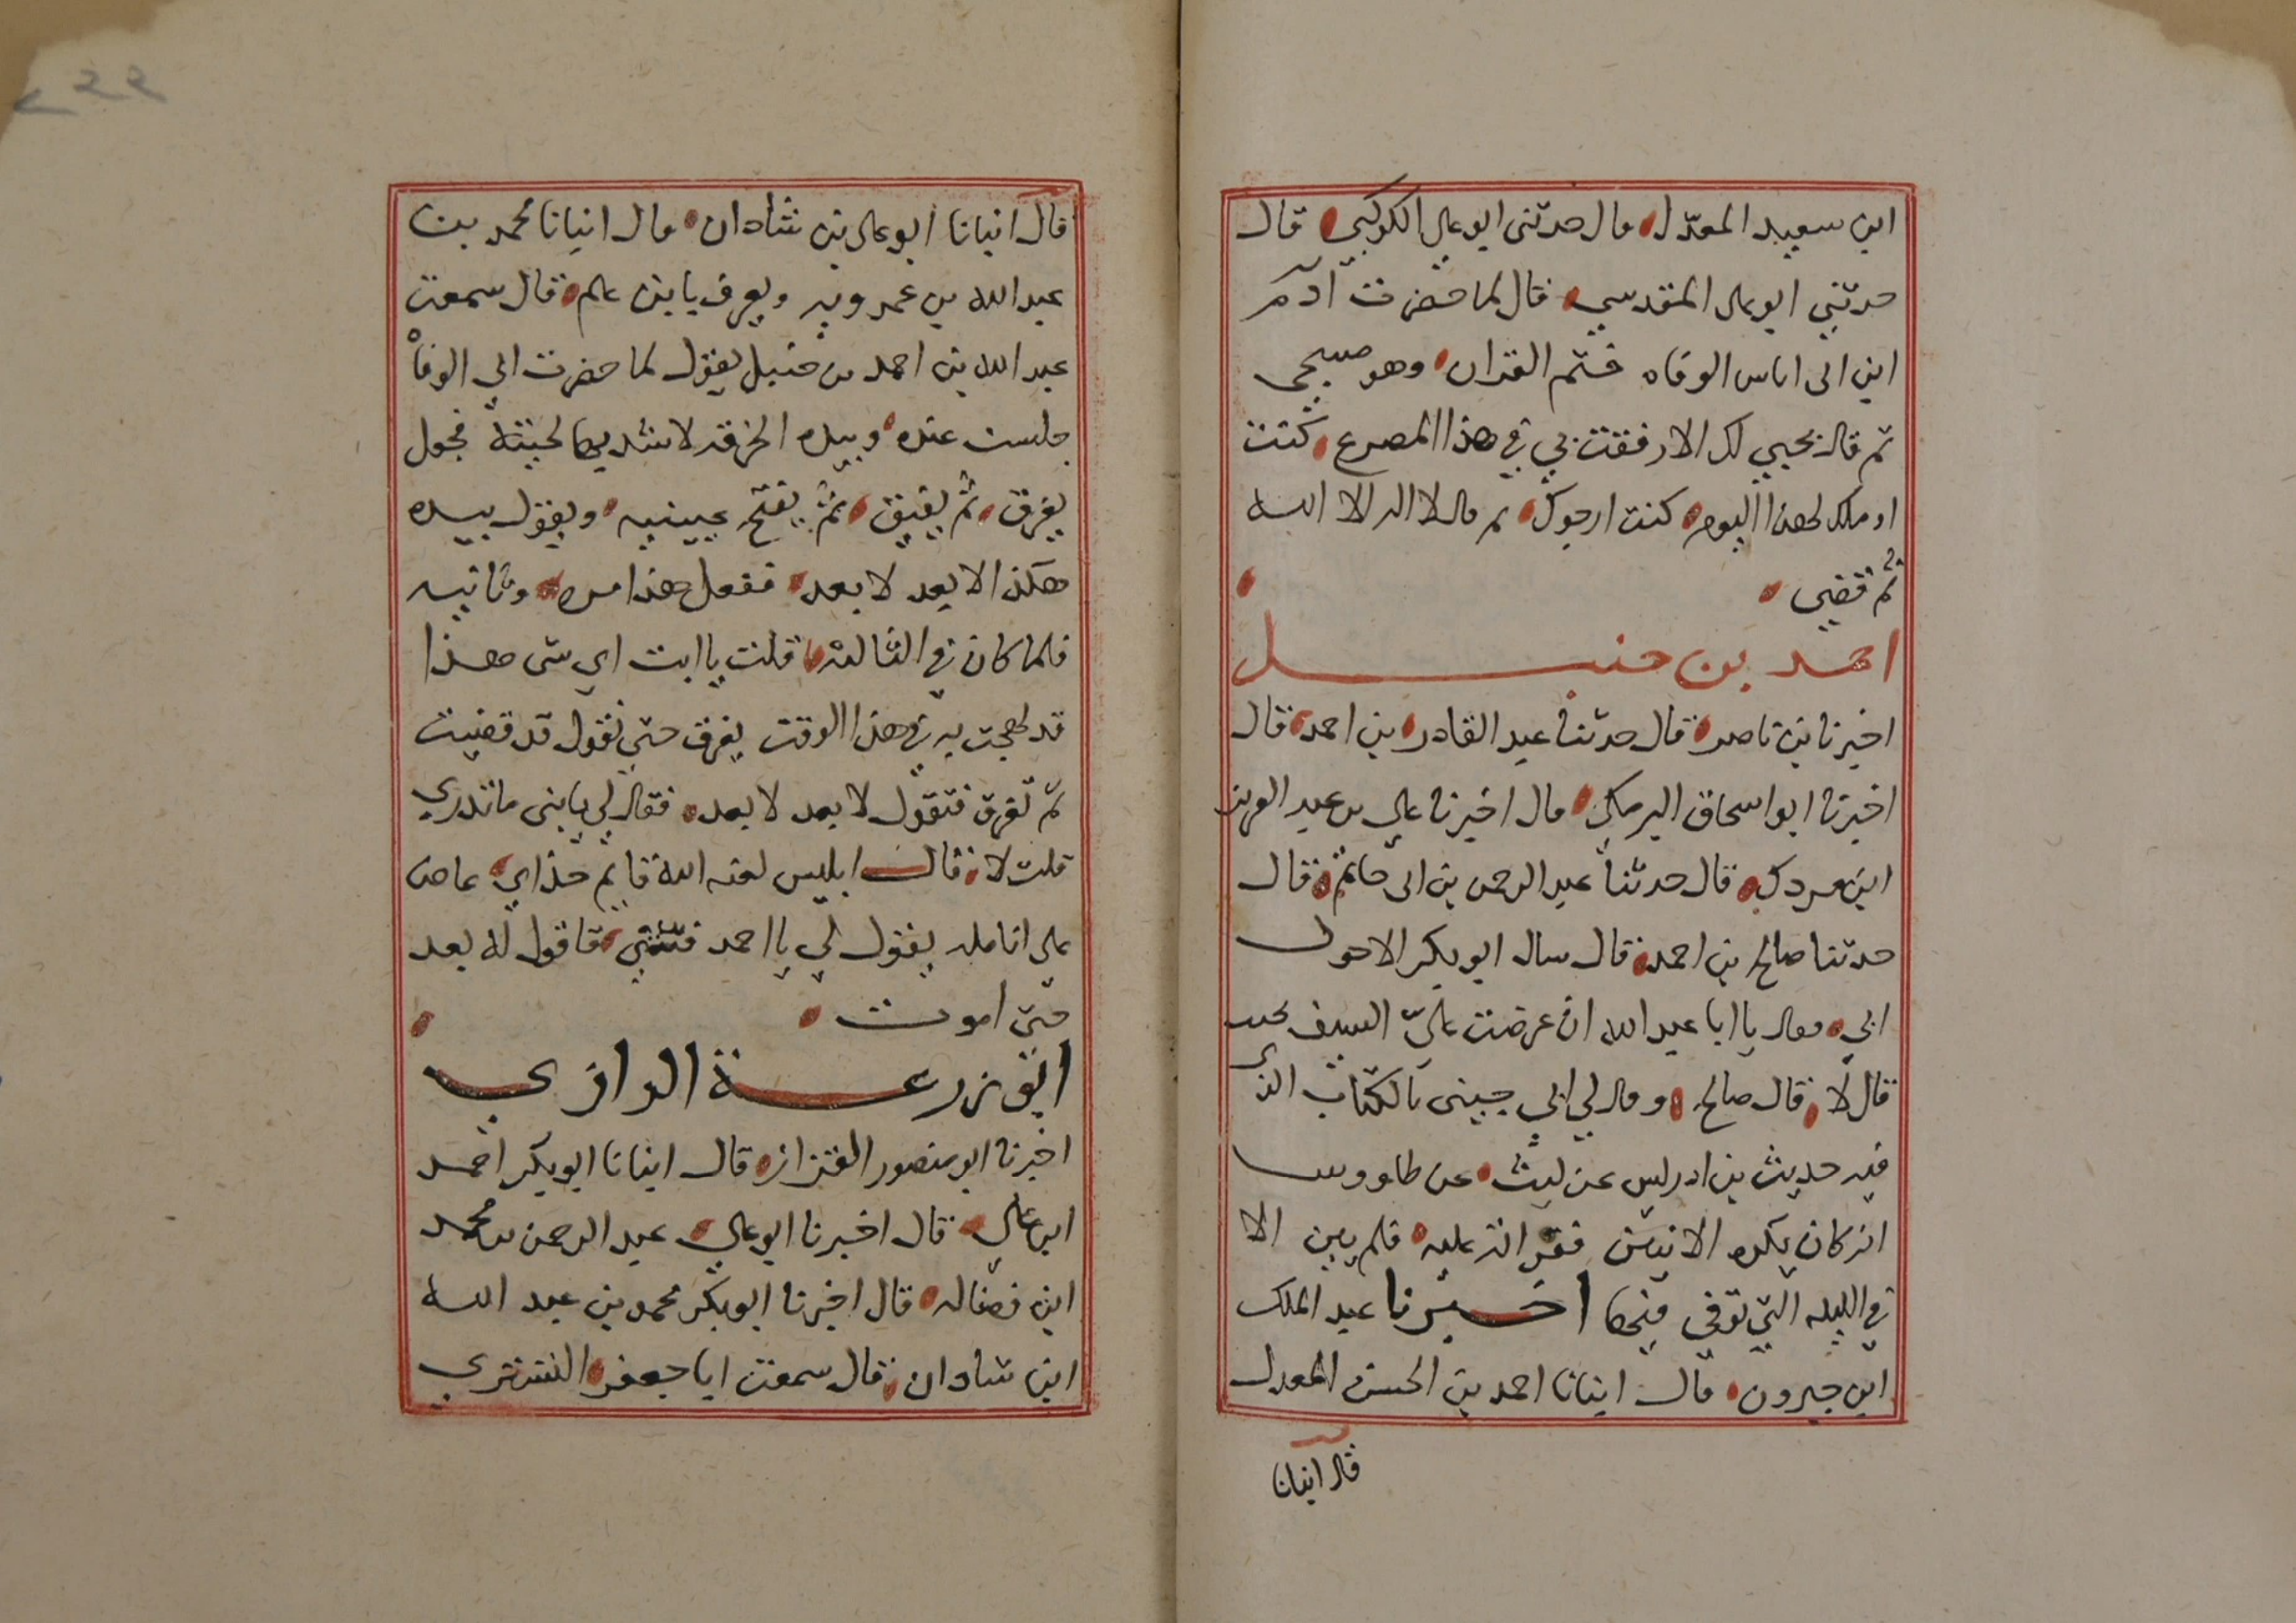 ابن سعيد المعدل قال حدثنى ابو على الكوكبي قال
حدثني ابو على المقدسي قال لما حضرت آدم
ابن ابى اياس الوفاه ختم القران وهو مسجى
ثم قال بحبي لك الا رفقت بي في هذا المصرع كنت
اوملك لهذا اليوم كنت ارجوك ثم قال لا اله الا الله
ثم قضي
احمد بن حنبل
اخبرنا بن ناصر قال حدثنا عبد القادر بن احمد قال
اخبرنا ابو اسحاق البرمكي قال اخبرنا علي بن عبد العزيز
ابن مردك قال حدثنا عبد الرحمن بن ابى حاتم قال
حدثنا صالح بن احمد قال سال ابو بكر الاحول
ابي فقال يا ابا عبد الله ان عرضت علىّ السيف تجيب
قال لا قال صالح وقال لي ابي جيىنى بالكتاب الذى
فيه حديث بن ادريس عن ليث عن طاووس
انه كان يكره الانين فقراته عليه فلم يين الا
في الليله التي توفي فيها اخبرنا عبد الملك
ابن خيرون قال انبانا احمد بن الحسن المعدل
قال انبانا
٢٩٩
قال انبانا ابو على بن شاذان قال انبانا محمد بن
عبد الله بن عمرويه ويعرف يابن علم قال سمعت
عبد الله بن احمد بن حنبل يقول لما حضرت ابي الوفاه
جلست عنده وبيده الخرقه لاشد بها لحيته فجعل
يغرق ثم يفيق ثم يفتح عيينيه ويقول بيده
هكذا لا بعد لا بعد ففعل هذا مره وثانيه
فلما كان في الثالثه قلت يا ابت اي شى هذا
قد لهجت به في هذا الوقت يغرق حتي نقول قد قضيت
ثم تغرق فتقول لا بعد لا بعد فقال لي يا بنى ما تدري
قلت لا قال ابليس لعنه الله قايم حذاي عاض
على انامله يقول لي يا احمد فتني فاقول له بعد
حتى اموت
ابو زرعة الرازي
اخبرنا ابو منصور القزاز قال انبانا ابو بكر احمد
ابن علي قال اخبرنا ابو علي عبد الرحمن بن محمد
ابن فضاله قال اخبرنا ابو بكر محمد بن عبد الله
ابن شاذان قال سمعت ابا جعفر التستري